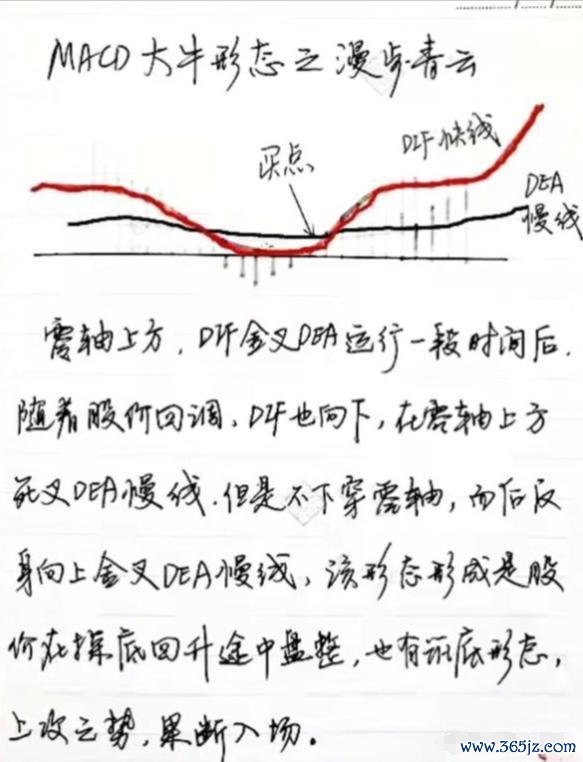 MACD大牛形态之漫步青云
买点
DIF快线
DEA
慢线
零轴上方，DIF金叉DEA运行一段时间后，
随着股价回调，DIF也向下，在零轴上方
死叉DEA慢线，但是不下穿零轴，而后反
身向上金叉DEA慢线，该形态形成是股
价在探底回升途中盘整，也有筑底形态，
上攻之势，果断入场。
www.365jz.com